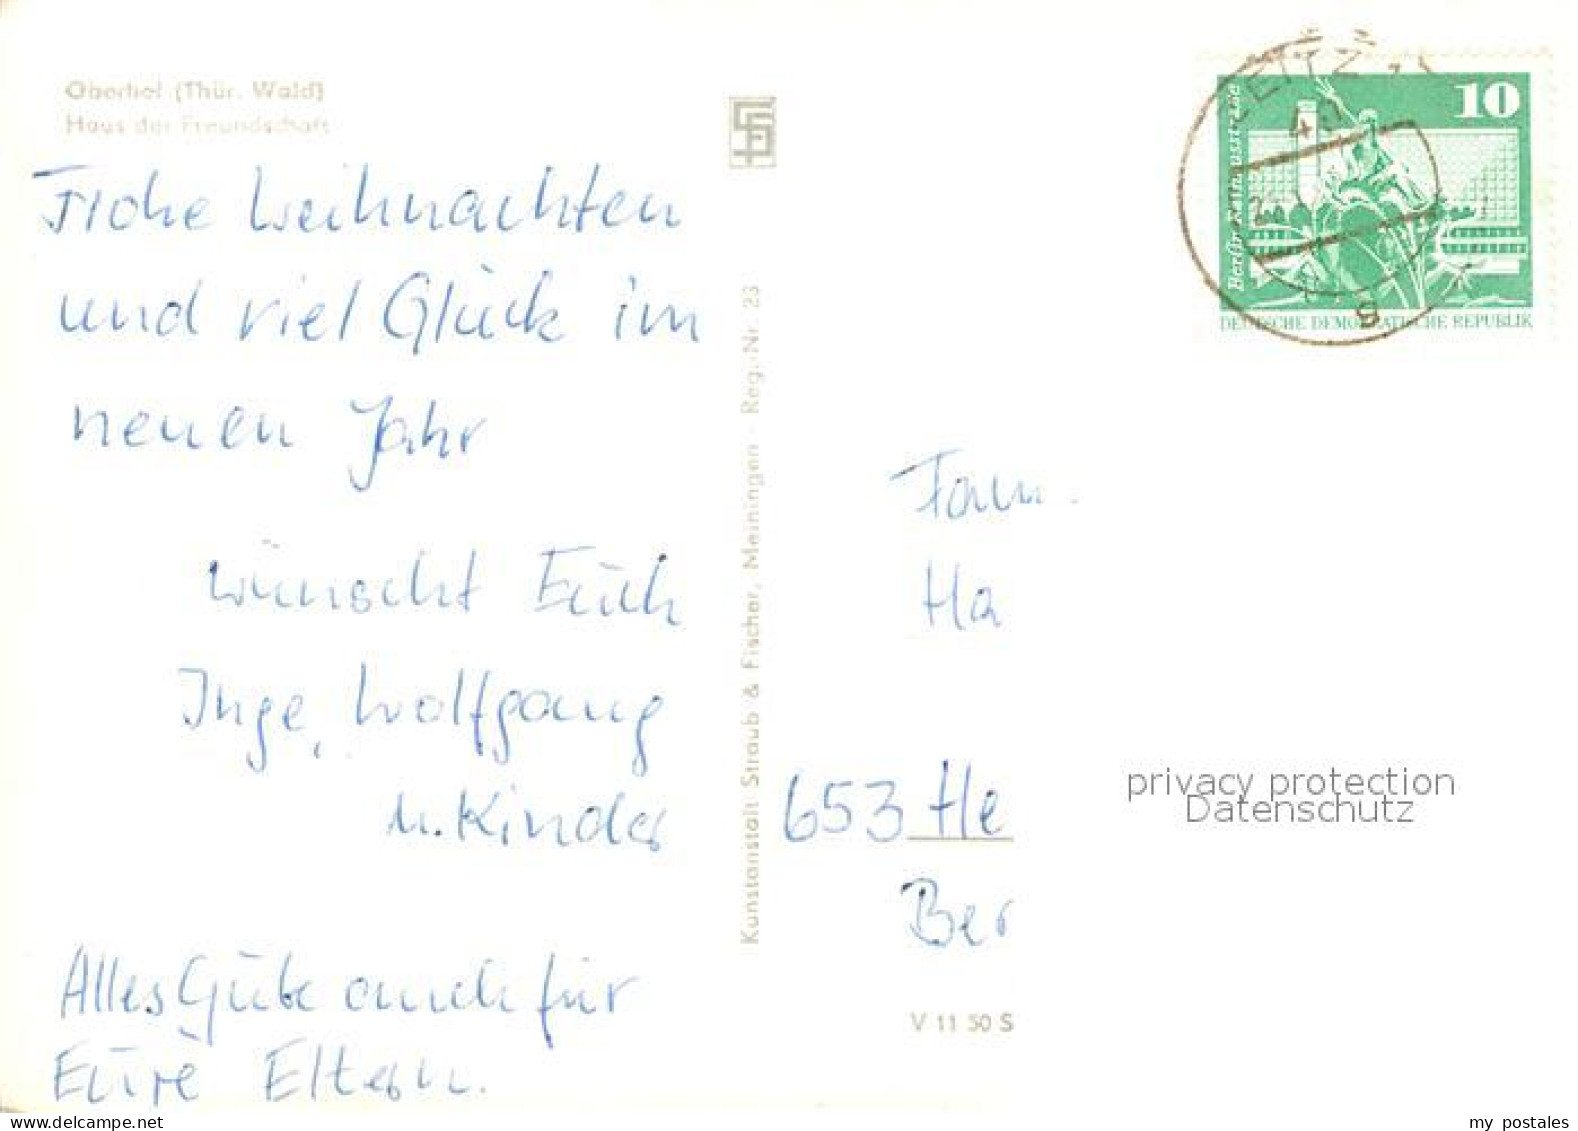 Oberhof (Thür. Wald)
Haus der Freundschaft
Frohe Weihnachten
und viel Glück im
neuen Jahr
wünscht Euch
Inge, Wolfgang
u. Kinder
Alles Gute auch für
Eure Eltern.
Kunstanstalt Straub & Fischer, Meiningen - Reg.-Nr. 23
ZEITZ 1
10
Berlin-Rathausstraße
DEUTSCHE DEMOKRATISCHE REPUBLIK
Fam.
Ha
653 He
Ber
V 11 50 S
privacy protection
Datenschutz
my postales